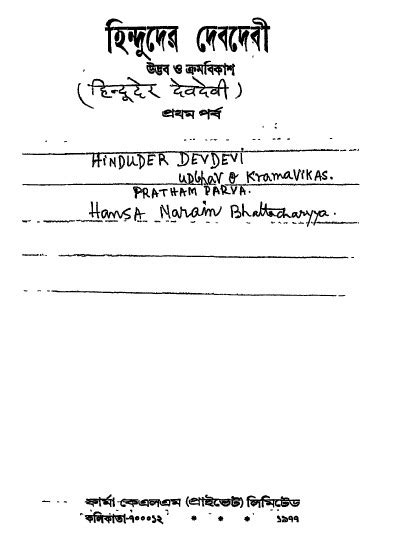 হিন্দুদের দেবদেবী
উদ্ভব ও ক্রমবিকাশ
(হিন্দুদের দেবদেবী)
প্রথম পর্ব
HINDUDER DEVDEVI
UDBHAV O KRAMAVIKAS.
PRATHAM PARVA.
HANSA NARAIN BHATTACHARYYA.
ফার্মা কেএলএম (প্রাইভেট) লিমিটেড
কলিকাতা-৭০০০১২ * * * ১৯৭৭